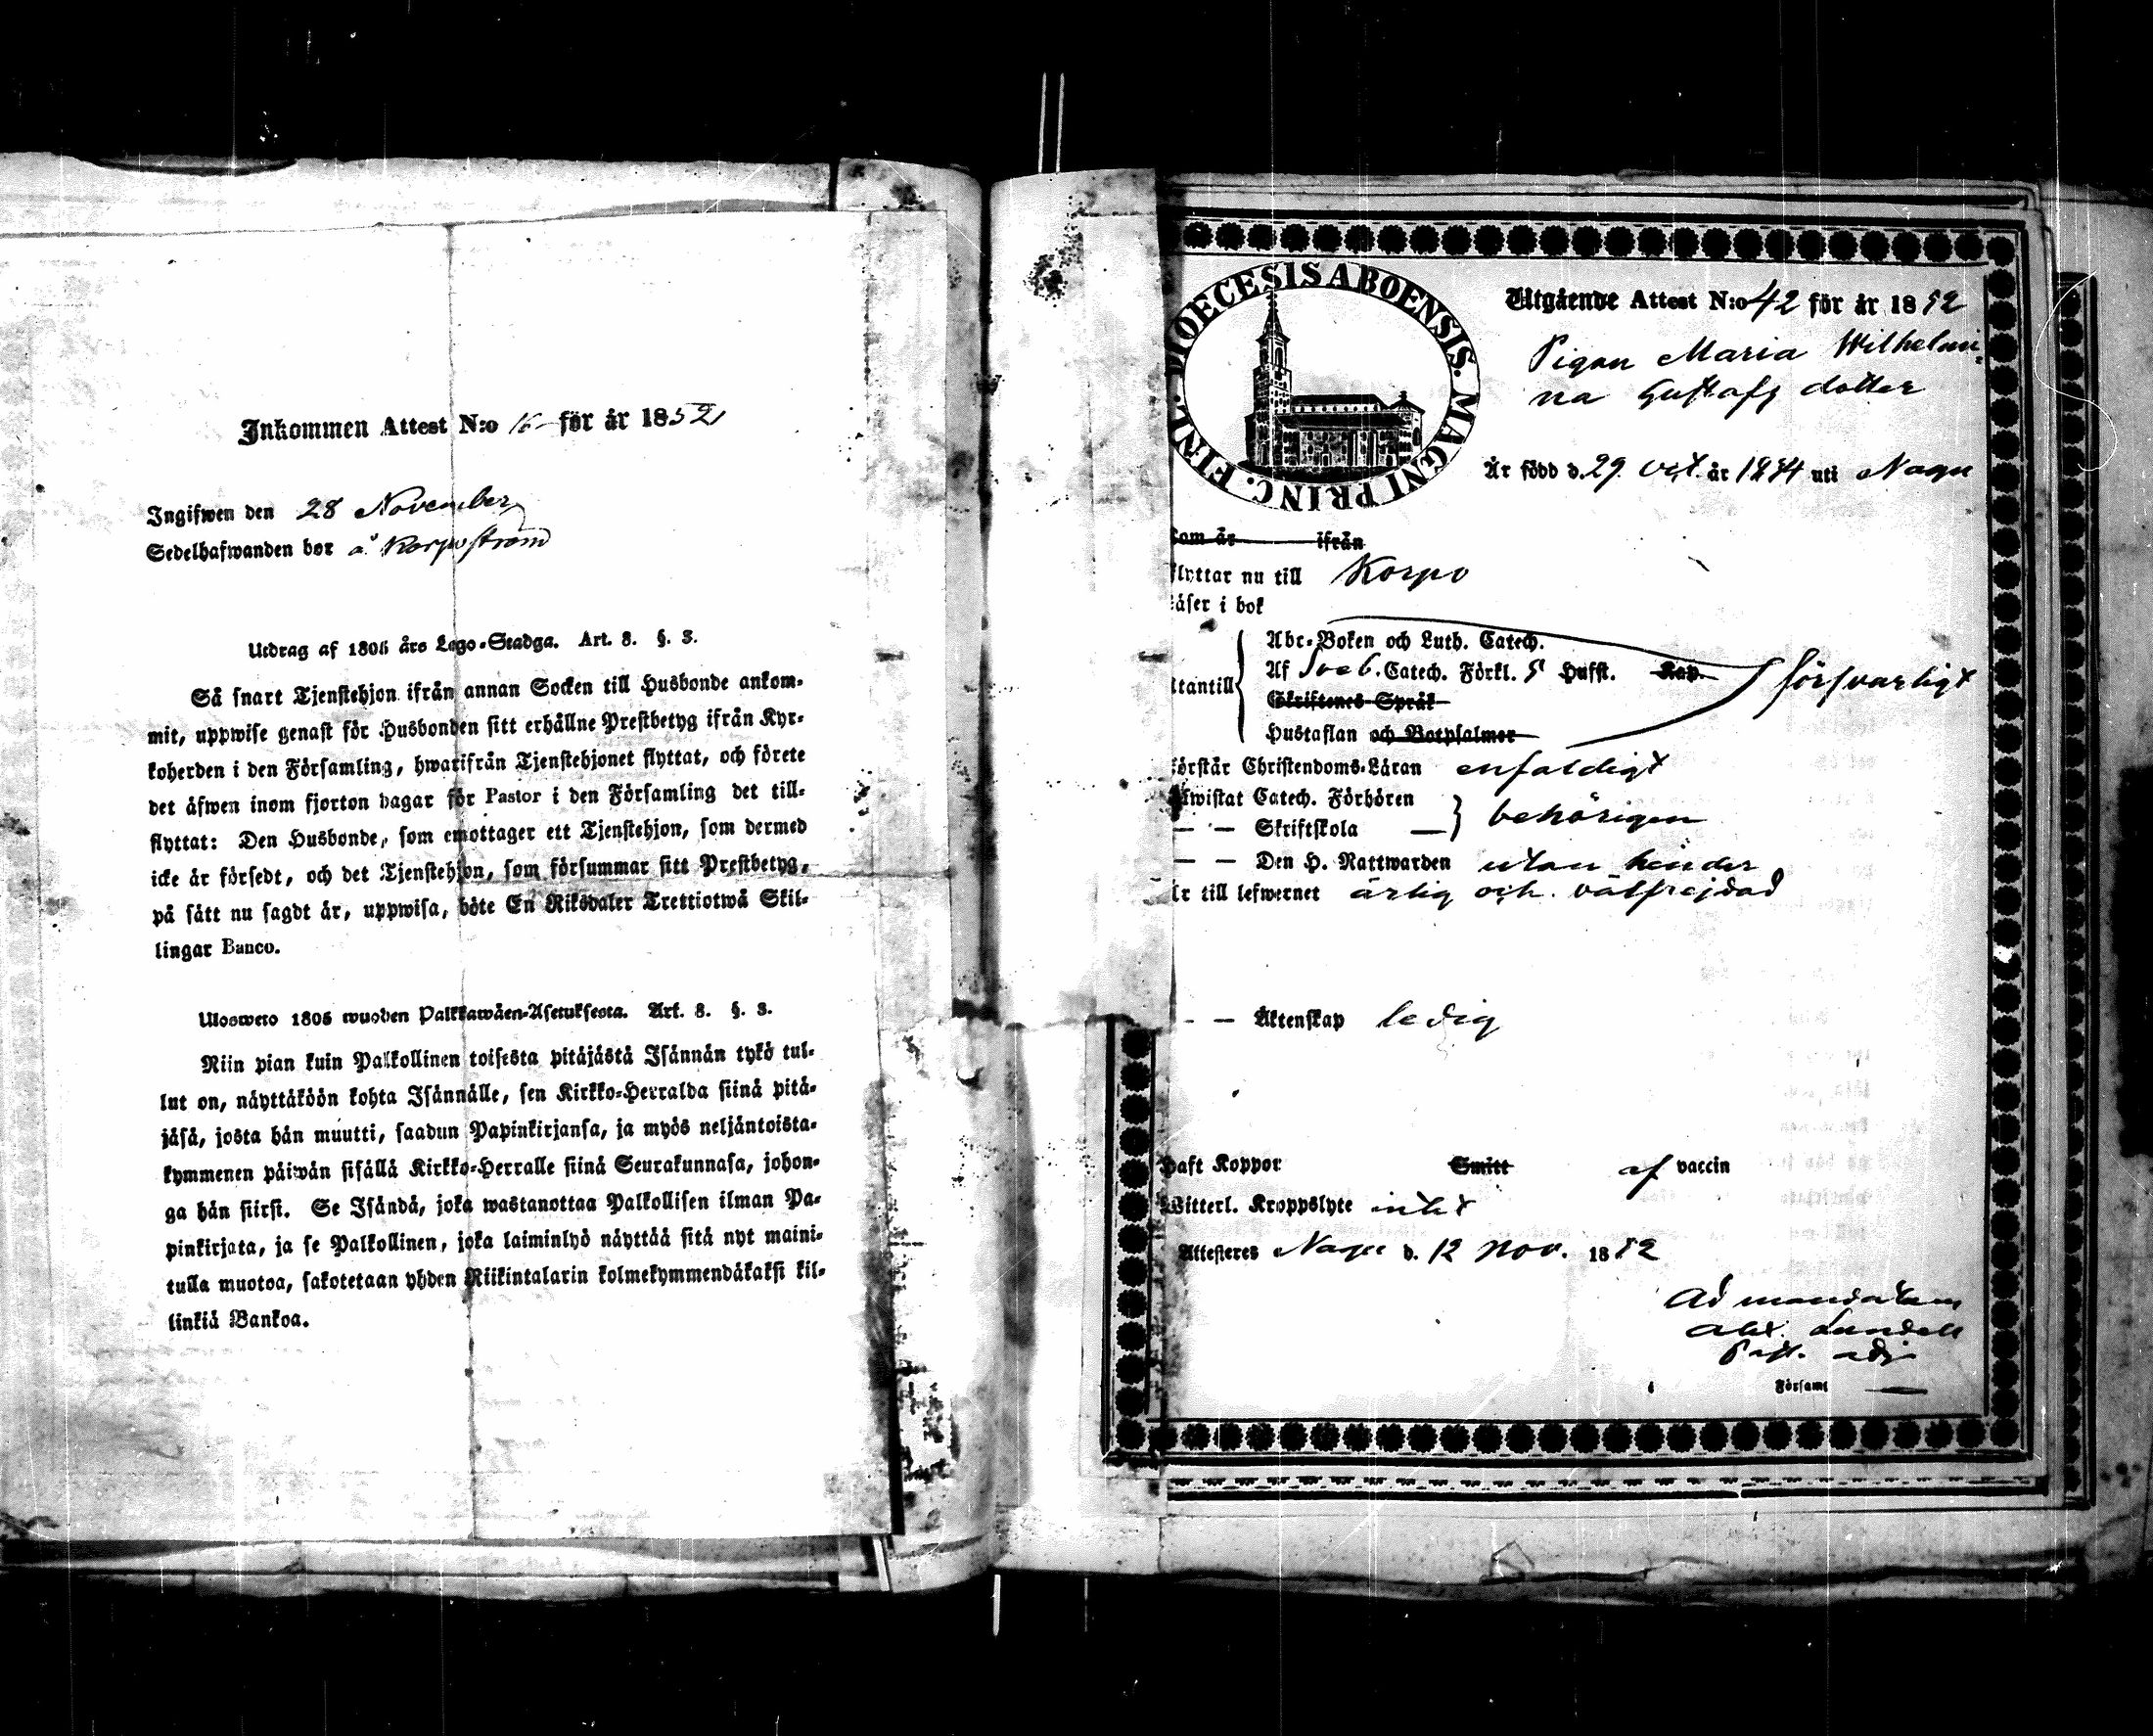 Inkommen Attest N:o 16 för år 1852
Ingifwen den 28 November
Sedelhafwanden bor å Korpoström
Utdrag af 1805 års Lego-Stadga. Art. 8. §. 3.
Så snart Tjenstehjon ifrån annan Socken till Husbonde ankom-
mit, uppwise genast för Husbonden sitt erhållne Prestbetyg ifrån Kyr-
koherden i den Församling, hwarifrån Tjenstehjonet flyttat, och förete
det äfwen inom fjorton dagar för Pastor i den Församling det till-
flyttat: Den Husbonde, som emottager ett Tjenstehjon, som dermed
icke är försedt, och det Tjenstehjon, som försummar sitt Prestbetyg,
på sätt nu sagdt är, uppwisa, böte En Riksdaler Trettiotwå Skil-
lingar Banco.
Ulosweto 1805 wuoden Palkkawäen-Asetuksesta. Art. 8. §. 3.
Niin pian kuin Palkollinen toisesta pitäjästä Isännän tykö tul-
lut on, näyttäköön kohta Isännälle, sen Kirkko-Herralda siinä pitä-
jäsä, josta hän muutti, saadun Papinkirjansa, ja myös neljäntoista-
kymmenen päiwän sisällä Kirkko-Herralle siinä Seurakunnasa, johon-
ga hän siirsi. Se Isändä, joka wastanottaa Palkollisen ilman Pa-
pinkirjata, ja se Palkollinen, joka laiminlyö näyttää sitä nyt maini-
tulla muotoa, sakotetaan yhden Riikintalarin kolmekymmendäkaksi kil-
linkiä Bankoa.
DIOECESIS ABOENSIS. MAGNI PRINC. FINL.
Utgående Attest N:o 42 för år 1852
Pigan Maria Wilhelmi-
na Gustafs dotter
Är född d. 29 Oct. år 1834 uti Nagu
som är ifrån
flyttar nu till Korpo
läser i bok
Abc-Boken och Luth. Catech.
utantill Af Sveb. Catech. Förkl. 5 Hufst. Kap. försvarligt
Skriftenes Språk
Hustaflan och Botpsalmer
förstår Christendoms-Läran enfaldigt
bewistat Catech. Förhören
— — Skriftskola — behörigen
— — Den H. Nattwarden utan hinder
är till lefwernet ärlig och välfrejdad
— — Äktenskap ledig
Haft Koppor Smitt af vaccin
Witterl. Kroppslyte intet
Attesteres Nagu d. 12 Nov. 1852
Ad mandatum
Alex. Lundell
Past. adj.
Församl